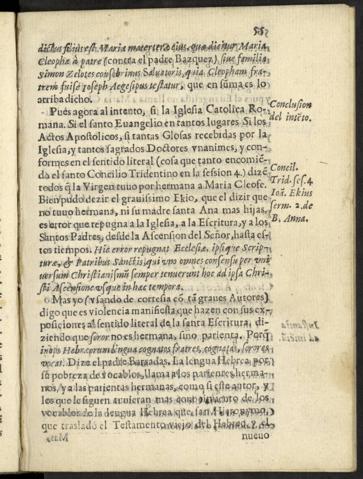 dictus filius est. Maria mater tertio eius, quæ dicitur Maria
Cleophæ à patre (contra el padre Bazquez) sive familia
simon Zelotes consobrinus Salvatoris, quia Cleopham fra-
trem fuisse Ioseph Aegesipus testatur, que en suma es lo
arriba dicho.
Pues agora al intento, si la Iglesia Catolica Ro-
mana. Si el santo Euangelio en tantos lugares Si los
Actes Apostolicos, si tantas Glosas recebidas por la
Iglesia, y tantos sagrados Doctores vnanimes, y con-
formes en el sentido literal (cosa que tanto encomiē-
da el santo Concilio Tridentino en la session 4.) dizē
todos q̃ la Virgen tuuo por hermana a Maria Cleofe.
Bien pudo dezir el grauissimo Ekio, que el dizir que
no tuuo hermana, ni su madre santa Ana mas hijas,
es error que repugna a la Iglesia, a la Escritura, y a los
Santos Padres, desde la Ascension del Señor, hasta es-
tos tiempos. Hic error repugnat Ecclesiæ, ipsique Scrip-
turæ, & Patribus Sanctis, qui vno omnes consensu per vni
uersum Christianismū semper tenuerunt hoc ad ipsa Chri-
sti Ascensione vsque in hæc tempora.
Mas yo (vsando de cortesia cō tā graues Autores)
digo que es violencia manifiesta que hazen con sus ex-
posiciones al sentido literal de la santa Escritura, di-
ziendo que soror no es hermana, sino parienta. Porq̃
inquis Hebræorum lingua cognatos fratres, cognatas, sorores
vocat. Dize el padre Baradas. La lengua Hebrea por
su pobreza de vocablos, llama a los parientes herma-
nos, y a las parientas hermanas, como si este autor, y
los que le siguen tuuieran mas conocimiento de los
vocablos de la lengua Hebrea que san Hieronymo,
que trasladó el Testamento viejo del Hebreo, y el
nueuo
Conclusion
del intēto.
Concil.
Trid. ses. 4
Ioā. Ekius
serm. 2. de
B. Anna.